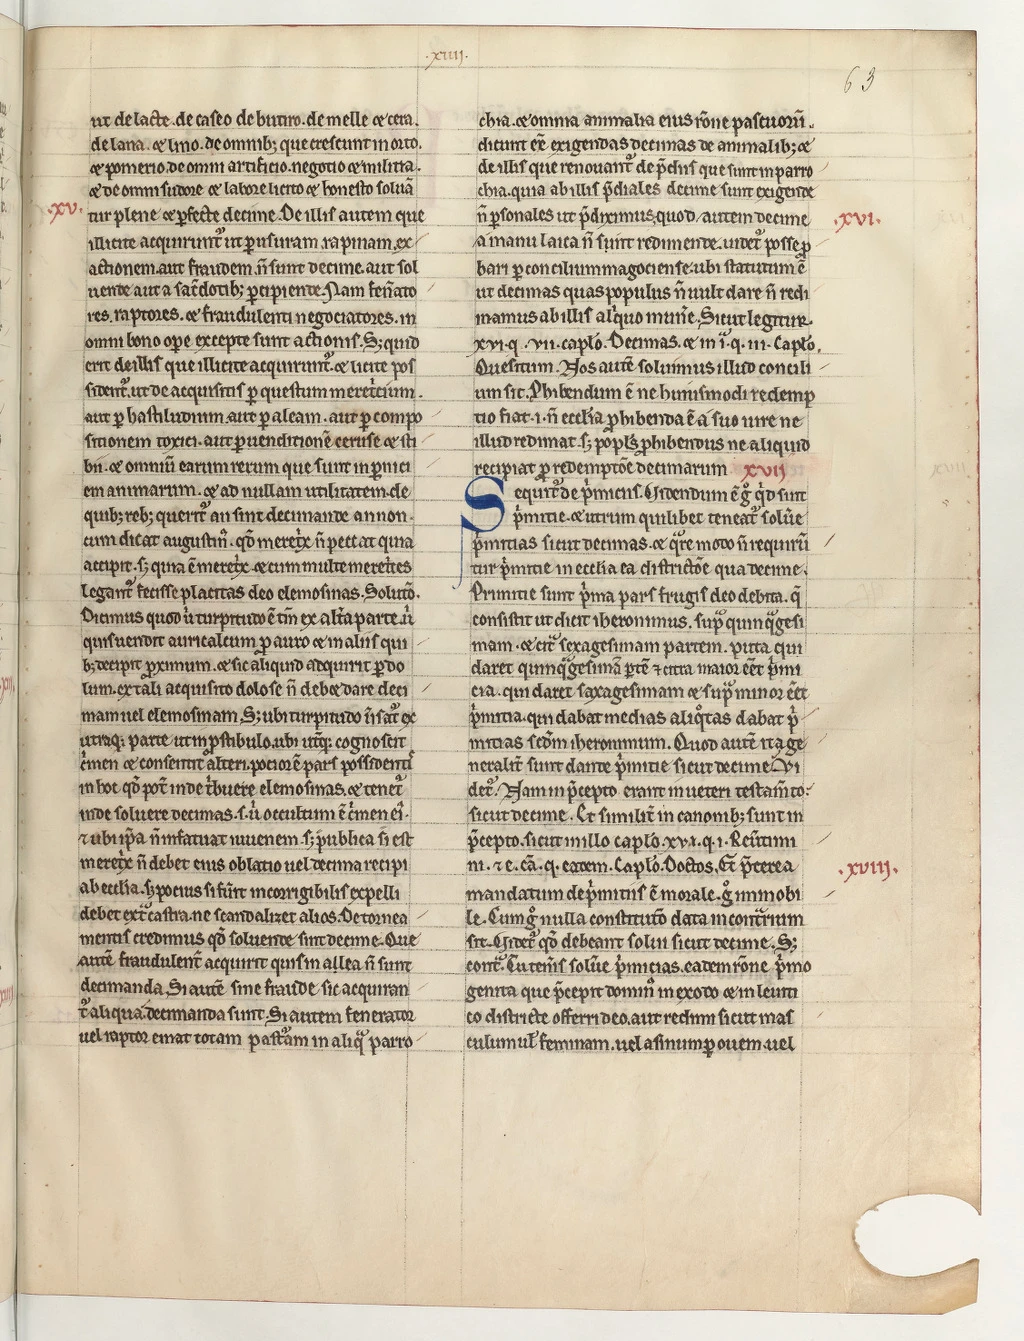 .xiiij.
63
ut de lacte. de caseo de butiro. de melle ⁊ cera.
de lana. ⁊ lino. de omnib; que crescunt in orto.
⁊ pomerio. de omni artificio. negotio ⁊ militia.
⁊ de omni sudore ⁊ labore licito ⁊ honesto soluā
.xv. tur plene ⁊ ꝑfecte decime. De illis autem que
illicite acquirunt᷑ ut ꝑ usuram. rapinam. ex
actionem. aut fraudem. n̄ sunt decime. aut sol
uende aut a sac̄dotib; ꝑcipiende. Nam fen̄ato
res. raptores. ⁊ fraudulenti negociatores. in
omni bono ope excepte sunt actionis. S; quid
erit de illis que illicite acquirunt᷑. ⁊ licite pos
sident᷑. ut de acquisitis ꝑ questum meret̄cium.
aut ꝑ hastiludium. aut ꝑ aleam. aut ꝑ compo
sitionem toxici. aut ꝑ uenditionē ceruse ⁊ sti
bii. ⁊ omniū earum rerum que sunt in ꝑnici
em animarum. ⁊ ad nullam utilitatem. de
quib; reb; querit᷑ an sint decimande an non.
cum dicat augustin᷒. qd̄ meret̄x n̄ peccat quia
accipit. s; quia ē meret̄x. ⁊ cum multe meret̄ces
legant᷑ fecisse placitas deo elemosinas. Solutō.
Dicimus quod ū turpitudo ē tm̄ ex alt̄a parte. ū
quis uendit auricalcum ꝓ auro ⁊ in aliis qui
b; decipit ꝓximum. ⁊ sic aliquid adquirit ꝑ do
lum. ex tali acquisito dolose n̄ debet dare deci
mam uel elemosinam. S; ubi turpitudo ūsat᷑ ex
utraq; parte ut in ꝓstibulo. ubi utq̄; cognoscit
c̄men ⁊ consentit alteri. pocior ē pars possidenti
in hoc qd̄ pot̄ inde t̄buere elemosinas. ⁊ tenet᷑
inde soluere decimas. s. ū occultum ē c̄men ei᷒.
⁊ ubi ip̄a n̄ infatuat iuuenem. s; publica si est
meret̄x n̄ debet eius oblatio uel decima recipi
ab ecc̄lia. s; pocius si fūit incorrigibilis expelli
debet ext̄ castra. ne scandalizet alios. De tornea
mentis credimus qd̄ soluende sint decime. Que
autē fraudulent̄ acquirit quis in allea n̄ sunt
decimanda. Si autē sine fraude sic acquiran
t᷑ aliqua. decimanda sunt. Si autem fenerator
uel raptor emat totam past᷑am in aliq̄ parro
chia. ⁊ omnia animalia eius rōne pascuorū.
dicunt eē exigendas decimas de animalib; ⁊
de illis que renouant᷑ de p̄dc̄is que sunt in parro
chia. quia ab illis p̄diales decime sunt exigende
n̄ ꝑsonales ut p̄diximus. quod autem decime .xvi.
a manu laica n̄ sunt redimende. uidet᷑ posse ꝓ
bari ꝑ concilium magociense. ubi statutum ē
ut decimas quas populus n̄ uult dare n̄ redi
mamus ab illis al̄quo mun̄e. Sicut legitur.
xvi. q. vii. caplō. Decimas. ⁊ in i. q. iii. Caplō.
Quesitum. Nos autē soluimus illud concili
um sic. Phibendum ē ne huiusmodi redemp
tio fiat. i. n̄ ecc̄lia ꝓhibenda ē a suo iure ne
illud redimat. s; popl̄s ꝓhibendus ne aliquid
recipiat ꝓ redemptōe decimarum xvij
Sequit᷑ de p̄miciis. Uidendum ē g̊ qd̄ sint
p̄mitie. ⁊ utrum quilibet teneat᷑ solūe
p̄mitias sicut decimas. ⁊ q̄re modo n̄ requirū
tur p̄mitie in ecc̄lia ea districtōe qua decime.
Primitie sunt p̄ma pars frugis deo debita. q̄
consistit ut dicit iheronimus. sup̄ quinq̄gesi
mam. ⁊ cit̄ sexagesimam partem. puta qui
daret quinq̄gesimā ꝑtē ⁊ citra maior eēt p̄mi
cia. qui daret saxagesimam ⁊ sup̄ minor eēt
p̄mitia. qui dabat medias aliq̄tas dabat p̄
mitias scdm̄ iheronimum. Quod autē ita ge
neralit̄ sunt dande p̄mitie sicut decime. Vi
det᷑. Nam in p̄cepto erant in ueteri testam̄to
sicut decime. Et similit̄ in canonib; sunt in
p̄cepto. sicut in illo caplō. xvi. q. i. Reuūtimi
ni. ⁊ e. cā. q. eadem. Caplō. Doctos. Et p̄terea
mandatum de p̄mitiis ē morale. g̊ immobi .xviii.
le. Cum g̊ nulla constitutō data in cont̄rium
sit. Uidet᷑ qd̄ debeant solui sicut decime. S;
cont̄. Tu ten̄is solūe p̄micias. eadem rōne p̄mo
genita que p̄cepit domin᷒ in exodo ⁊ in leuiti
co districte offerri deo. aut redimi sicut mas
culum ul̄ feminam. uel asinum ꝓ ouem. uel